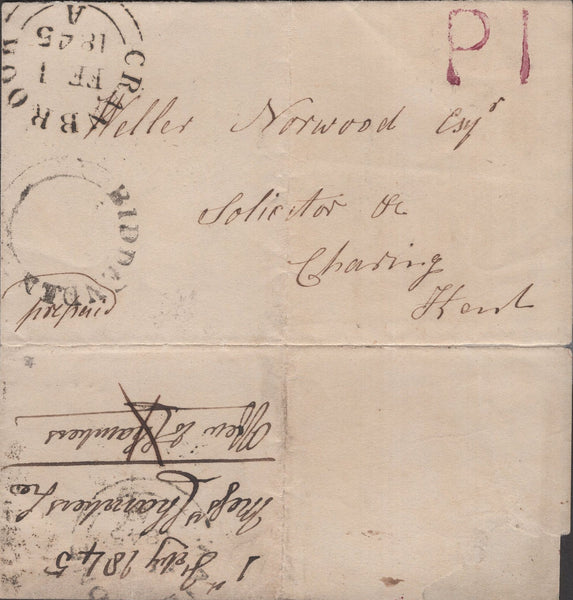 CRANBROOK
A
FE 1
1845
P1
Weller Norwood Esqr
Solicitor &c
Charing
Kent
BIDDENDEN
prepaid
1st Feby 1845
Messrs Chambers &c
Offen & Chambers